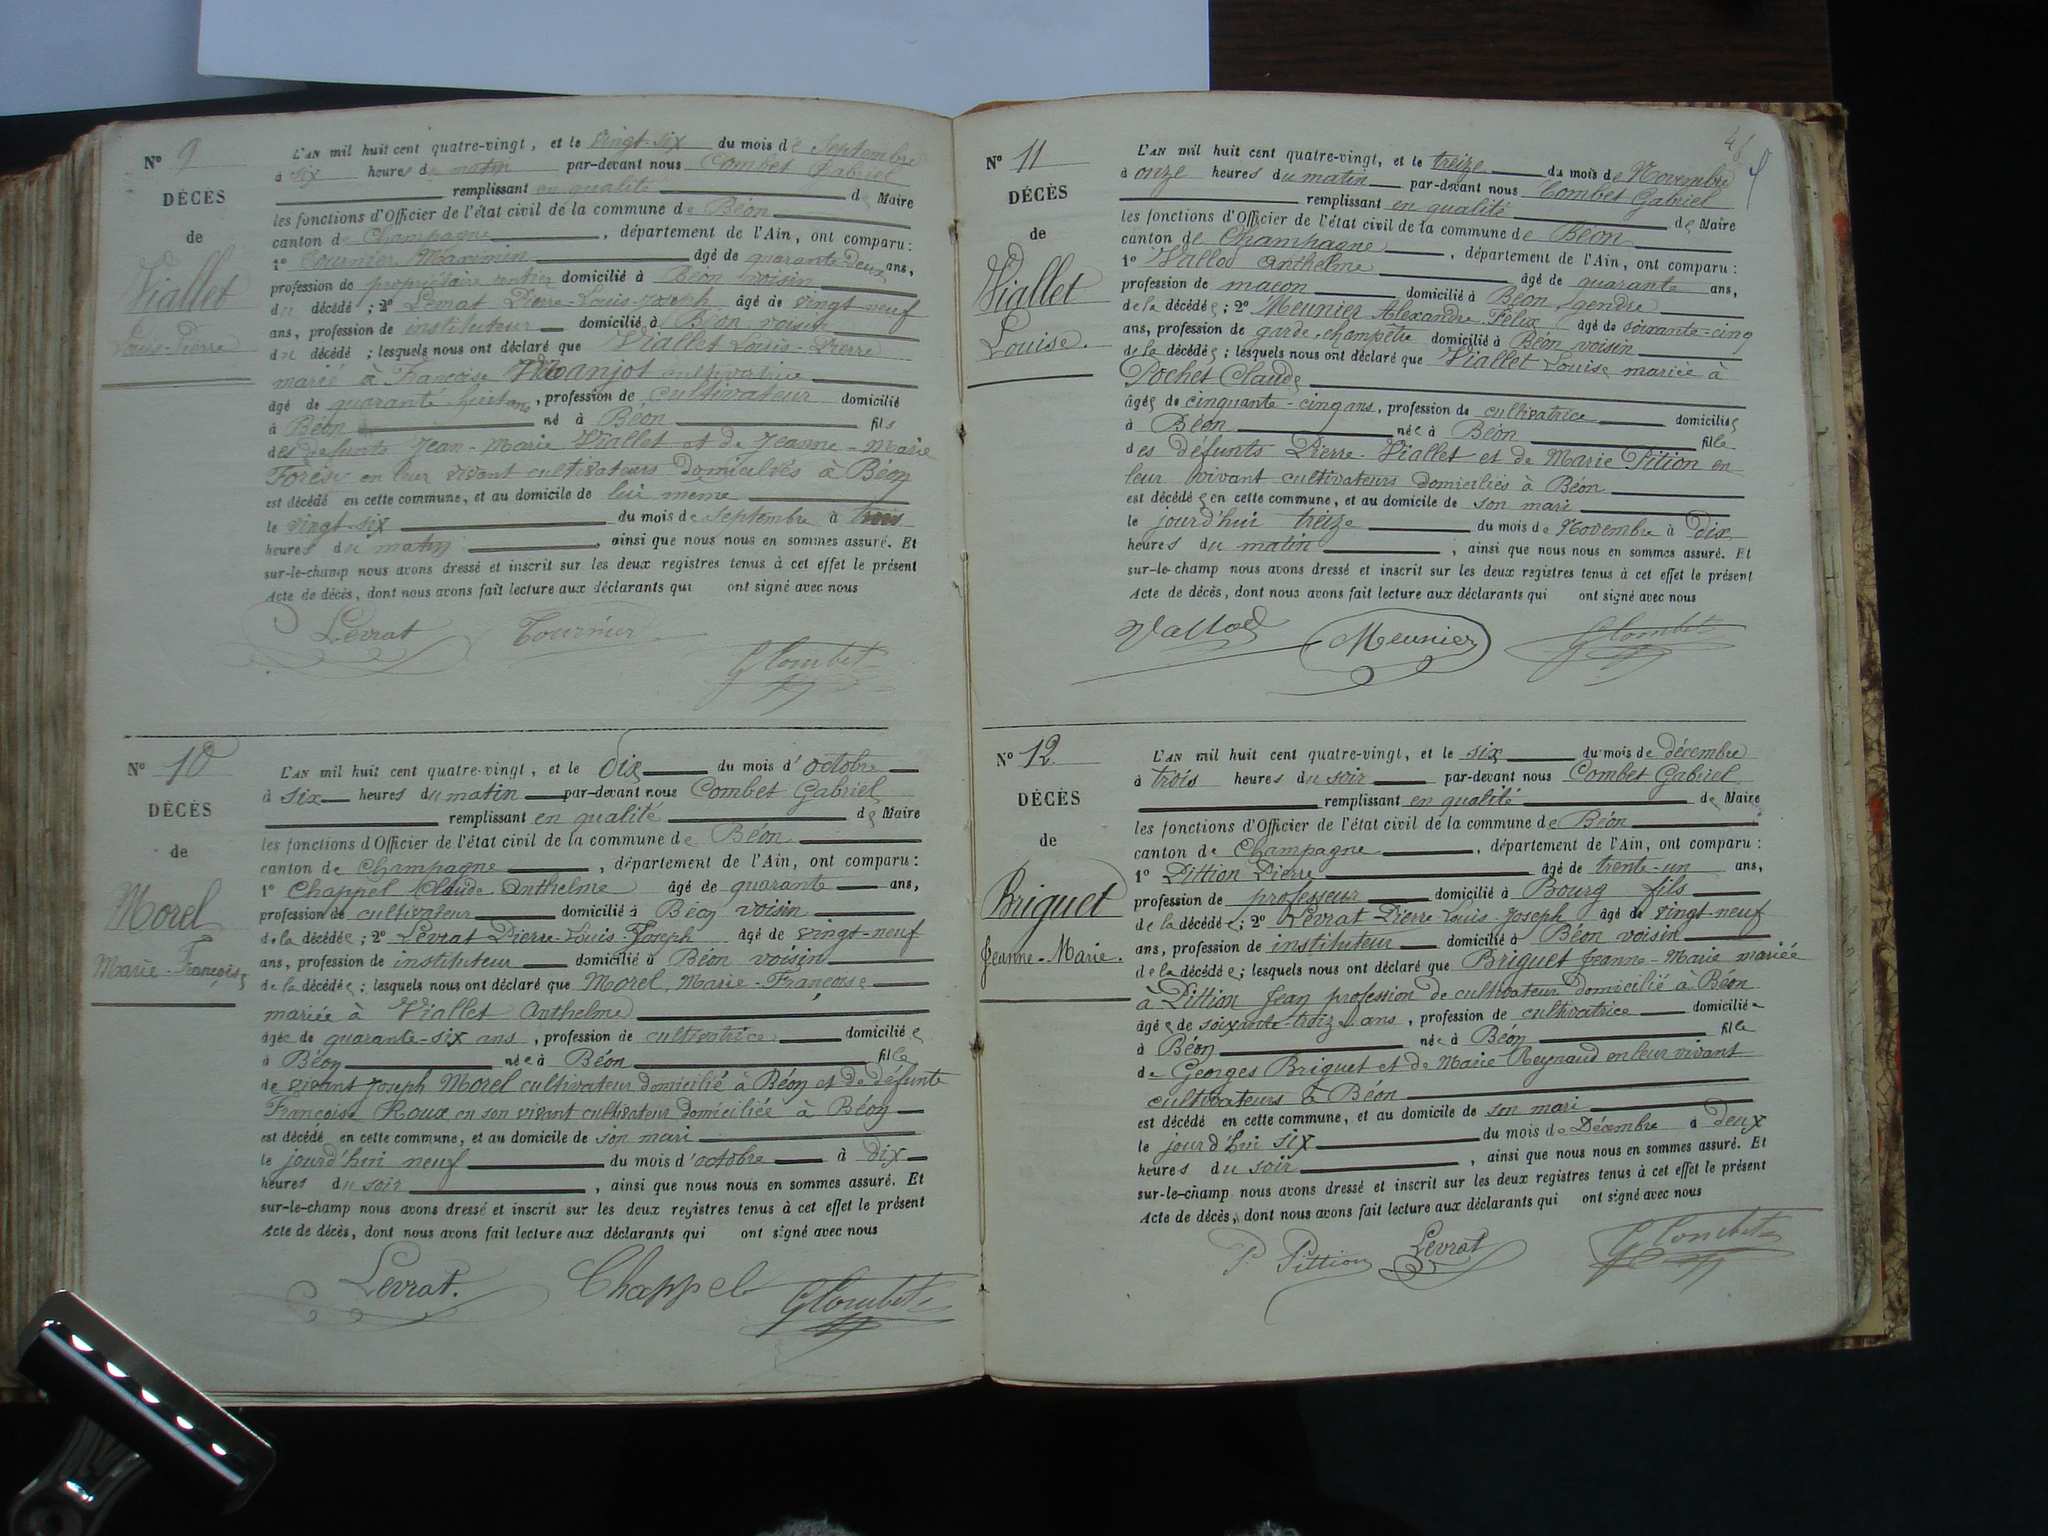 N° 9
DÉCÈS
de
Viallet
Louis-Pierre
L'AN mil huit cent quatre-vingt, et le vingt-six du mois de Septembre
à six heures du matin par-devant nous Combet Gabriel
remplissant en qualité de Maire
les fonctions d'Officier de l'état civil de la commune de Béon
canton de Champagne, département de l'Ain, ont comparu:
1° Tournier Maximin âgé de quarante-deux ans,
profession de propriétaire rentier domicilié à Béon voisin
du décédé; 2° Levrat Pierre-Louis-Joseph âgé de vingt-neuf
ans, profession de instituteur domicilié à Béon voisin
du décédé; lesquels nous ont déclaré que Viallet Louis-Pierre
marié à Françoise cultivatrice
âgé de quarante-huit ans, profession de cultivateur domicilié
à Béon né à Béon fils
des défunts Jean-Marie Viallet et de Jeanne-Marie
en leur vivant cultivateurs domiciliés à Béon
est décédé en cette commune, et au domicile de lui même
le vingt-six du mois de septembre à trois
heures du matin, ainsi que nous nous en sommes assuré. Et
sur-le-champ nous avons dressé et inscrit sur les deux registres tenus à cet effet le présent
Acte de décès, dont nous avons fait lecture aux déclarants qui ont signé avec nous
Levrat Tournier
G Combet
N° 10
DÉCÈS
de
Morel
Marie-Françoise
L'AN mil huit cent quatre-vingt, et le dix du mois d'octobre
à six heures du matin par-devant nous Combet Gabriel
remplissant en qualité de Maire
les fonctions d'Officier de l'état civil de la commune de Béon
canton de Champagne, département de l'Ain, ont comparu:
1° Chappel Claude Anthelme âgé de quarante ans,
profession de cultivateur domicilié à Béon voisin
de la décédée; 2° Levrat Pierre-Louis-Joseph âgé de vingt-neuf
ans, profession de instituteur domicilié à Béon voisin
de la décédée; lesquels nous ont déclaré que Morel, Marie-Françoise
mariée à Viallet Anthelme
âgée de quarante-six ans, profession de cultivatrice domiciliée
à Béon née à Béon fille
de vivant Joseph Morel cultivateur domicilié à Béon et de défunte
Françoise Roux en son vivant cultivateur domiciliée à Béon
est décédé en cette commune, et au domicile de son mari
le jourd'hui neuf du mois d'octobre à dix
heures du soir, ainsi que nous nous en sommes assuré. Et
sur-le-champ nous avons dressé et inscrit sur les deux registres tenus à cet effet le présent
Acte de décès, dont nous avons fait lecture aux déclarants qui ont signé avec nous
Levrat. Chappel G Combet
N° 11
DÉCÈS
de
Viallet
Louise.
L'AN mil huit cent quatre-vingt, et le treize du mois de Novembre
à onze heures du matin par-devant nous Combet Gabriel
remplissant en qualité de Maire
les fonctions d'Officier de l'état civil de la commune de Béon
canton de Champagne, département de l'Ain, ont comparu:
1° Vallod Anthelme âgé de quarante ans,
profession de maçon domicilié à Béon, gendre
de la décédée; 2° Meunier Alexandre Félix âgé de soixante-cinq
ans, profession de garde-champêtre domicilié à Béon voisin
de la décédée; lesquels nous ont déclaré que Viallet Louise mariée à
Pochet Claude
âgée de cinquante-cinq ans, profession de cultivatrice domiciliée
à Béon née à Béon fille
des défunts Pierre Viallet et de Marie Pition en
leur vivant cultivateurs domiciliés à Béon
est décédée en cette commune, et au domicile de son mari
le jourd'hui treize du mois de Novembre à dix
heures du matin; ainsi que nous nous en sommes assuré. Et
sur-le-champ nous avons dressé et inscrit sur les deux registres tenus à cet effet le présent
Acte de décès, dont nous avons fait lecture aux déclarants qui ont signé avec nous
Vallod Meunier G Combet
N° 12
DÉCÈS
de
Briguet
Jeanne-Marie.
L'AN mil huit cent quatre-vingt, et le six du mois de décembre
à trois heures du soir par-devant nous Combet Gabriel
remplissant en qualité de Maire
les fonctions d'Officier de l'état civil de la commune de Béon
canton de Champagne, département de l'Ain, ont comparu:
1° Pittion Pierre âgé de trente-un ans,
profession de professeur domicilié à Bourg fils
de la décédée; 2° Levrat Pierre Louis-Joseph âgé de vingt-neuf
ans, profession de instituteur domicilié à Béon voisin
de la décédée; lesquels nous ont déclaré que Briguet Jeanne-Marie mariée
à Pittion Jean profession de cultivateur domicilié à Béon
âgée de soixante-treize ans, profession de cultivatrice domiciliée
à Béon née à Béon fille
de Georges Briguet et de Marie Reynaud en leur vivant
cultivateurs à Béon
est décédé en cette commune, et au domicile de son mari
le jourd'hui six du mois de Décembre à deux
heures du soir, ainsi que nous nous en sommes assuré. Et
sur-le-champ nous avons dressé et inscrit sur les deux registres tenus à cet effet le présent
Acte de décès, dont nous avons fait lecture aux déclarants qui ont signé avec nous
P Pittion Levrat G Combet